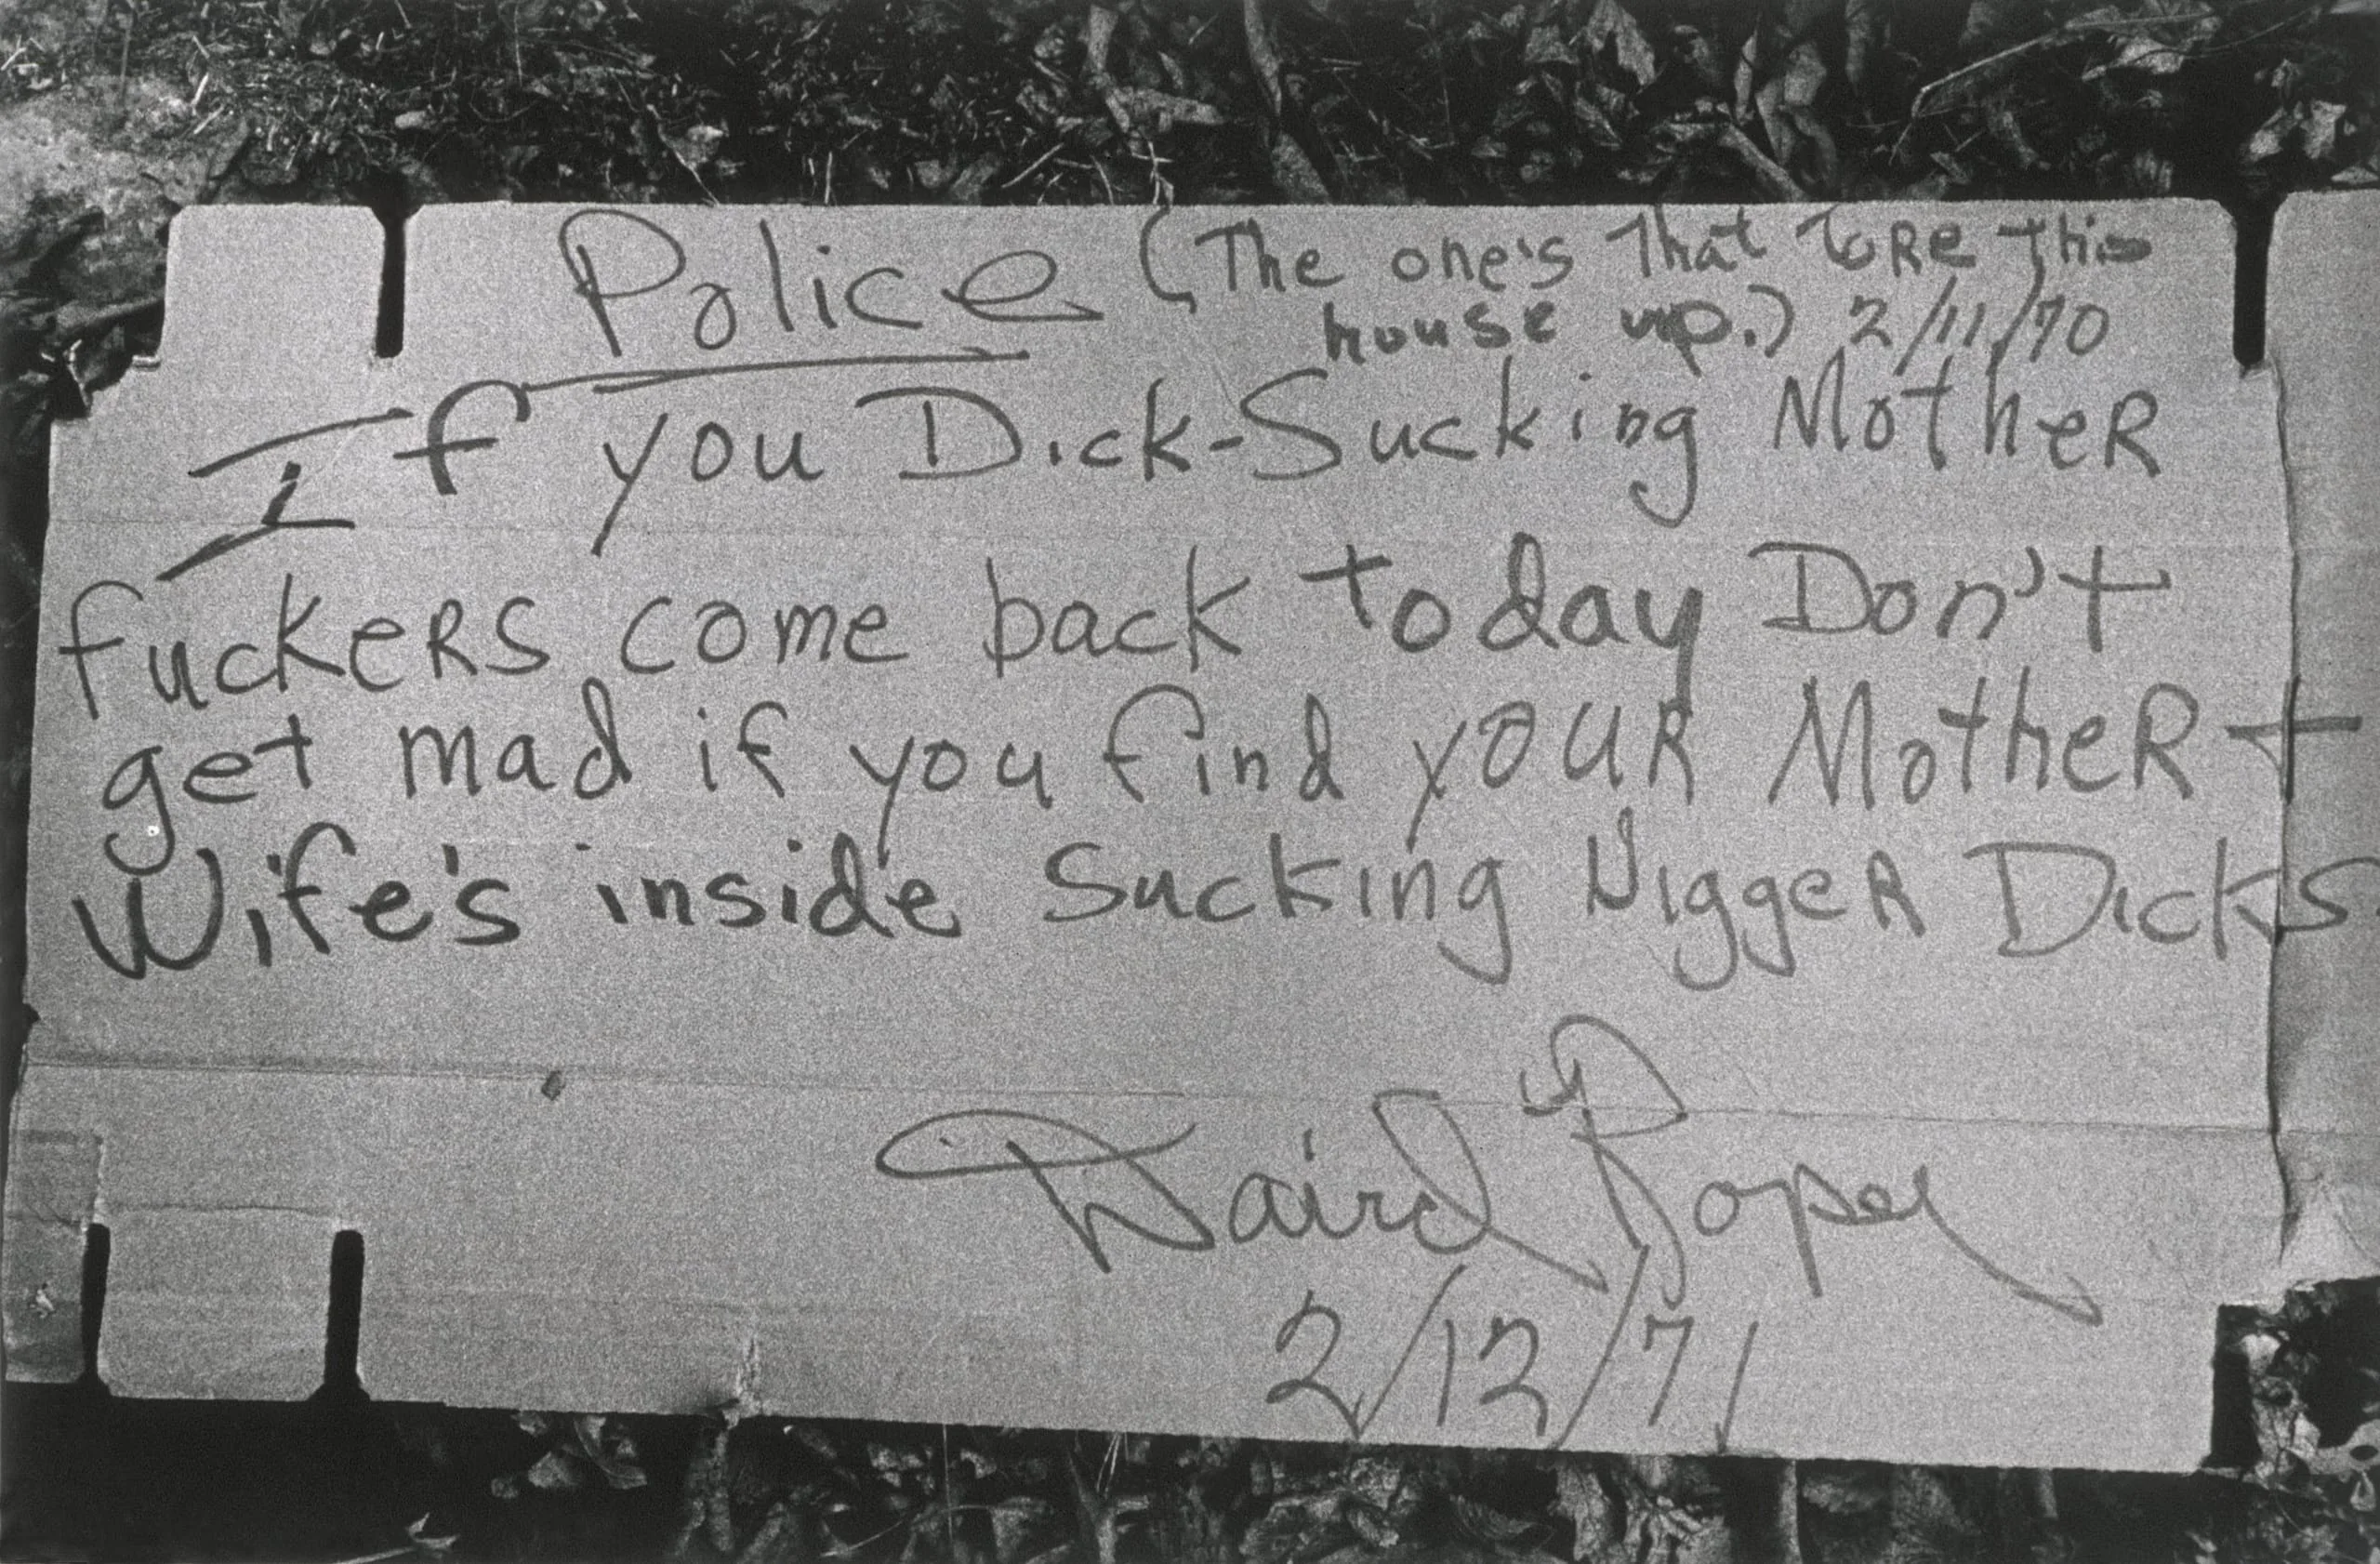 Police (The one's That ToRe This
house up.) 2/11/70
If you Dick-Sucking MotheR
fuckeRs come back today Don't
get mad if you find youR MotheR +
Wife's inside Sucking NiggeR Dicks
2/12/71